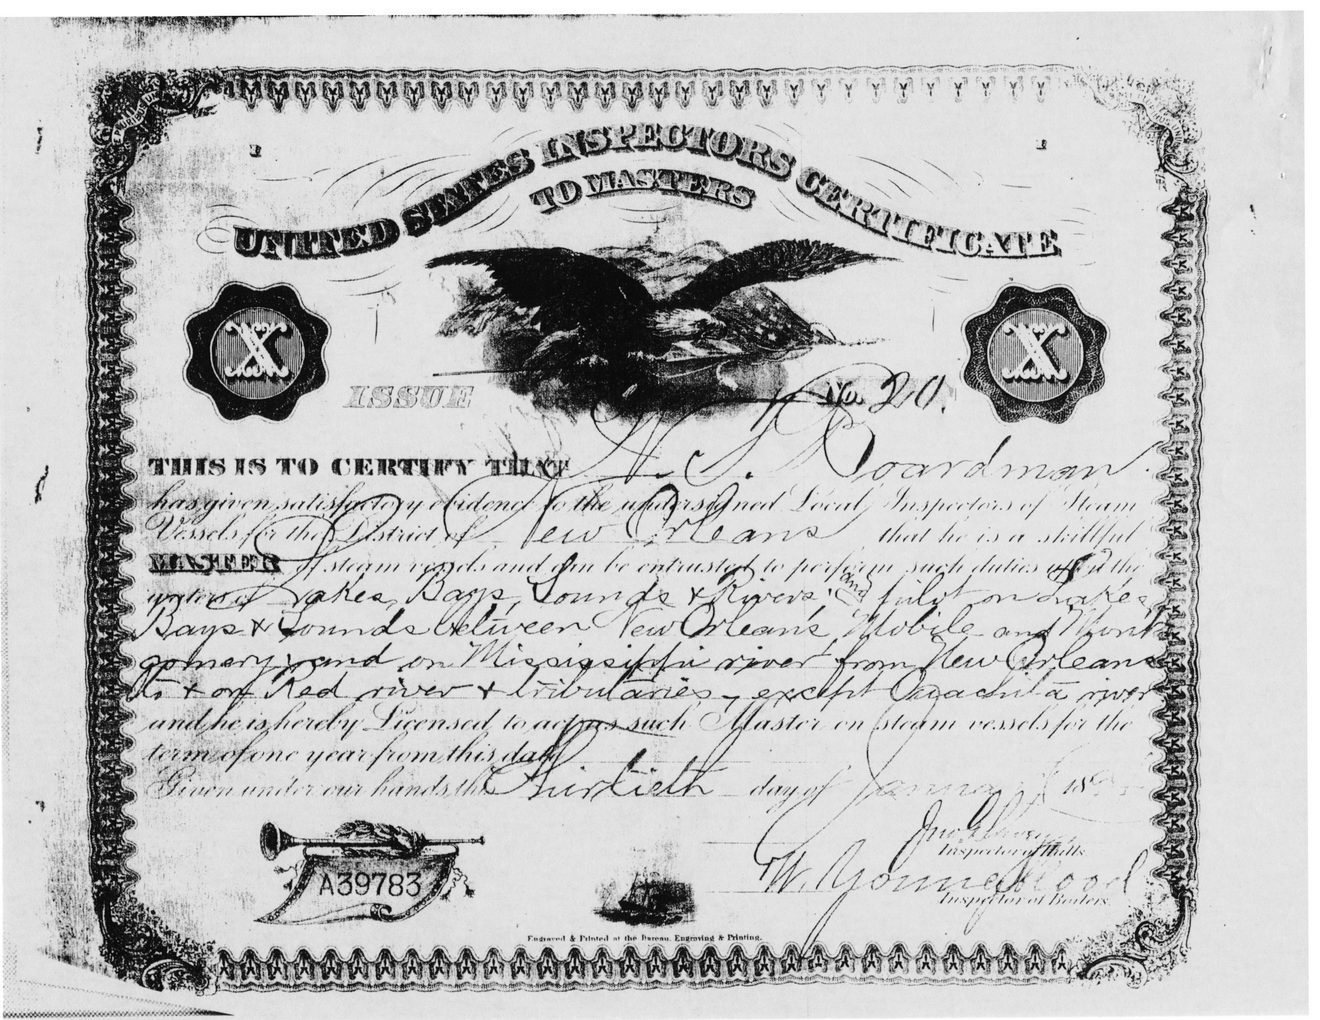 UNITED STATES INSPECTORS CERTIFICATE
TO MASTERS
X
X
ISSUE No. 20.
THIS IS TO CERTIFY THAT Boardman
has given satisfactory evidence to the undersigned Local Inspectors of Steam
Vessels for the District of New Orleans that he is a skillful
MASTER of steam vessels and can be entrusted to perform such duties upon the
waters of Lakes, Bays, Sounds & Rivers, and pilot on Lakes,
Bays & Sounds between New Orleans, Mobile and Mont
gomery; and on Mississippi river from New Orleans
to & on Red river & tributaries, except Ouachita river
and he is hereby Licensed to act as such Master on steam vessels for the
term of one year from this date
Given under our hands the Thirtieth day of January 18
Inspector of Hulls.
W. Youngblood
Inspector of Boilers.
A39783
Engraved & Printed at the Bureau, Engraving & Printing.